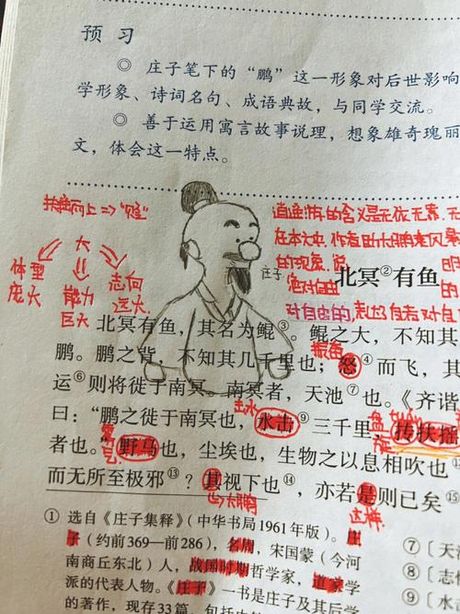 预 习
◎ 庄子笔下的“鹏”这一形象对后世影响
学形象、诗词名句、成语典故，与同学交流。
◎ 善于运用寓言故事说理，想象雄奇瑰丽
文，体会这一特点。
大
体型
庞大
能力
巨大
志向
远大
庄子
北冥②有鱼
对自由的
北冥有鱼，其名为鲲③。鲲之大，不知其
鹏。鹏之背，不知其几千里也；怒④而飞，其
运⑥则将徙于南冥。南冥者，天池⑦也。《齐谐
曰：“鹏之徙于南冥也，水击⑨三千里，抟扶摇
者也。”野马也，尘埃也，生物之以息相吹也
而无所至极邪⑬？其视下也⑭，亦若是则已矣⑮
这样
① 选自《庄子集释》（中华书局1961年版）。庄
子（约前369—前286），名周，宋国蒙（今河
南商丘东北）人，战国时期哲学家，道家学
派的代表人物。《庄子》一书是庄子及其后学
的著作，现存33篇，包括内
⑦〔天
⑧〔志
⑨